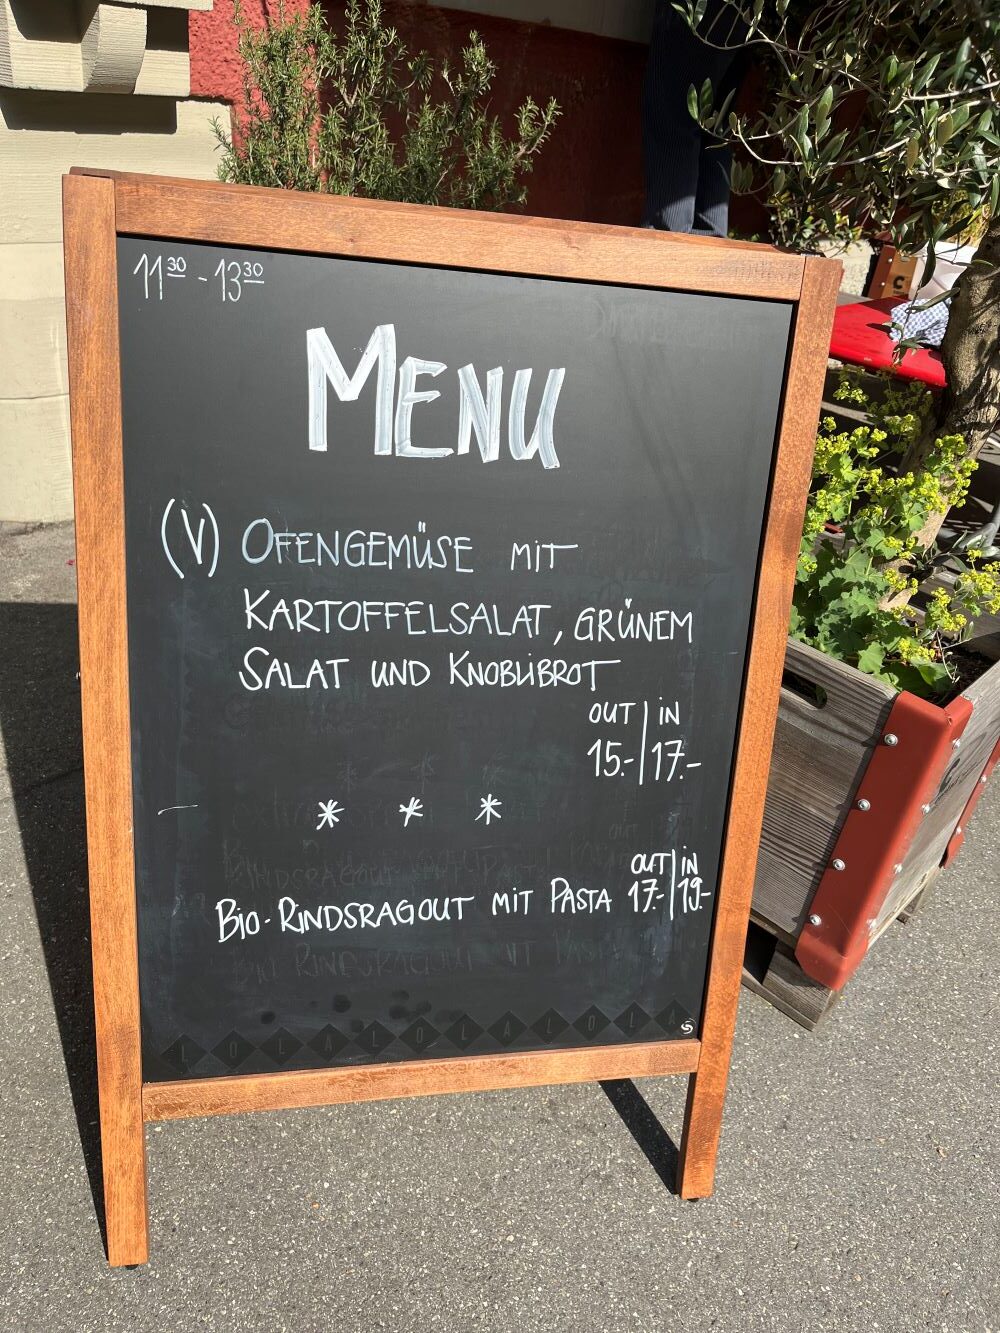 11³⁰ - 13³⁰
MENU
(V) OFENGEMÜSE MIT
KARTOFFELSALAT, GRÜNEM
SALAT UND KNOBLIBROT
OUT | IN
15.- | 17.-
* * *
OUT | IN
BIO-RINDSRAGOUT MIT PASTA 17.- | 19.-
LOLALOLALOLA